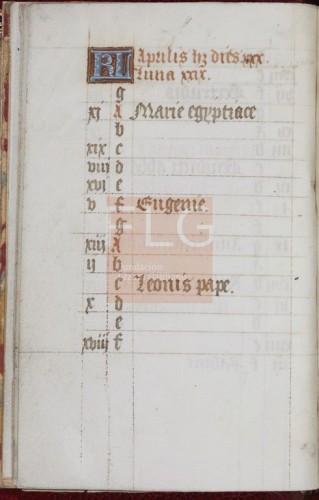 KL Aprilis hz dies xxx.
Luna xxix.
g
xi A Marie egyptiace
b
xix c
viii d
xvi e
v f Eugenie.
g
xiii A
ij b
c Leonis pape.
x d
e
xviii f
FLG
Fundación